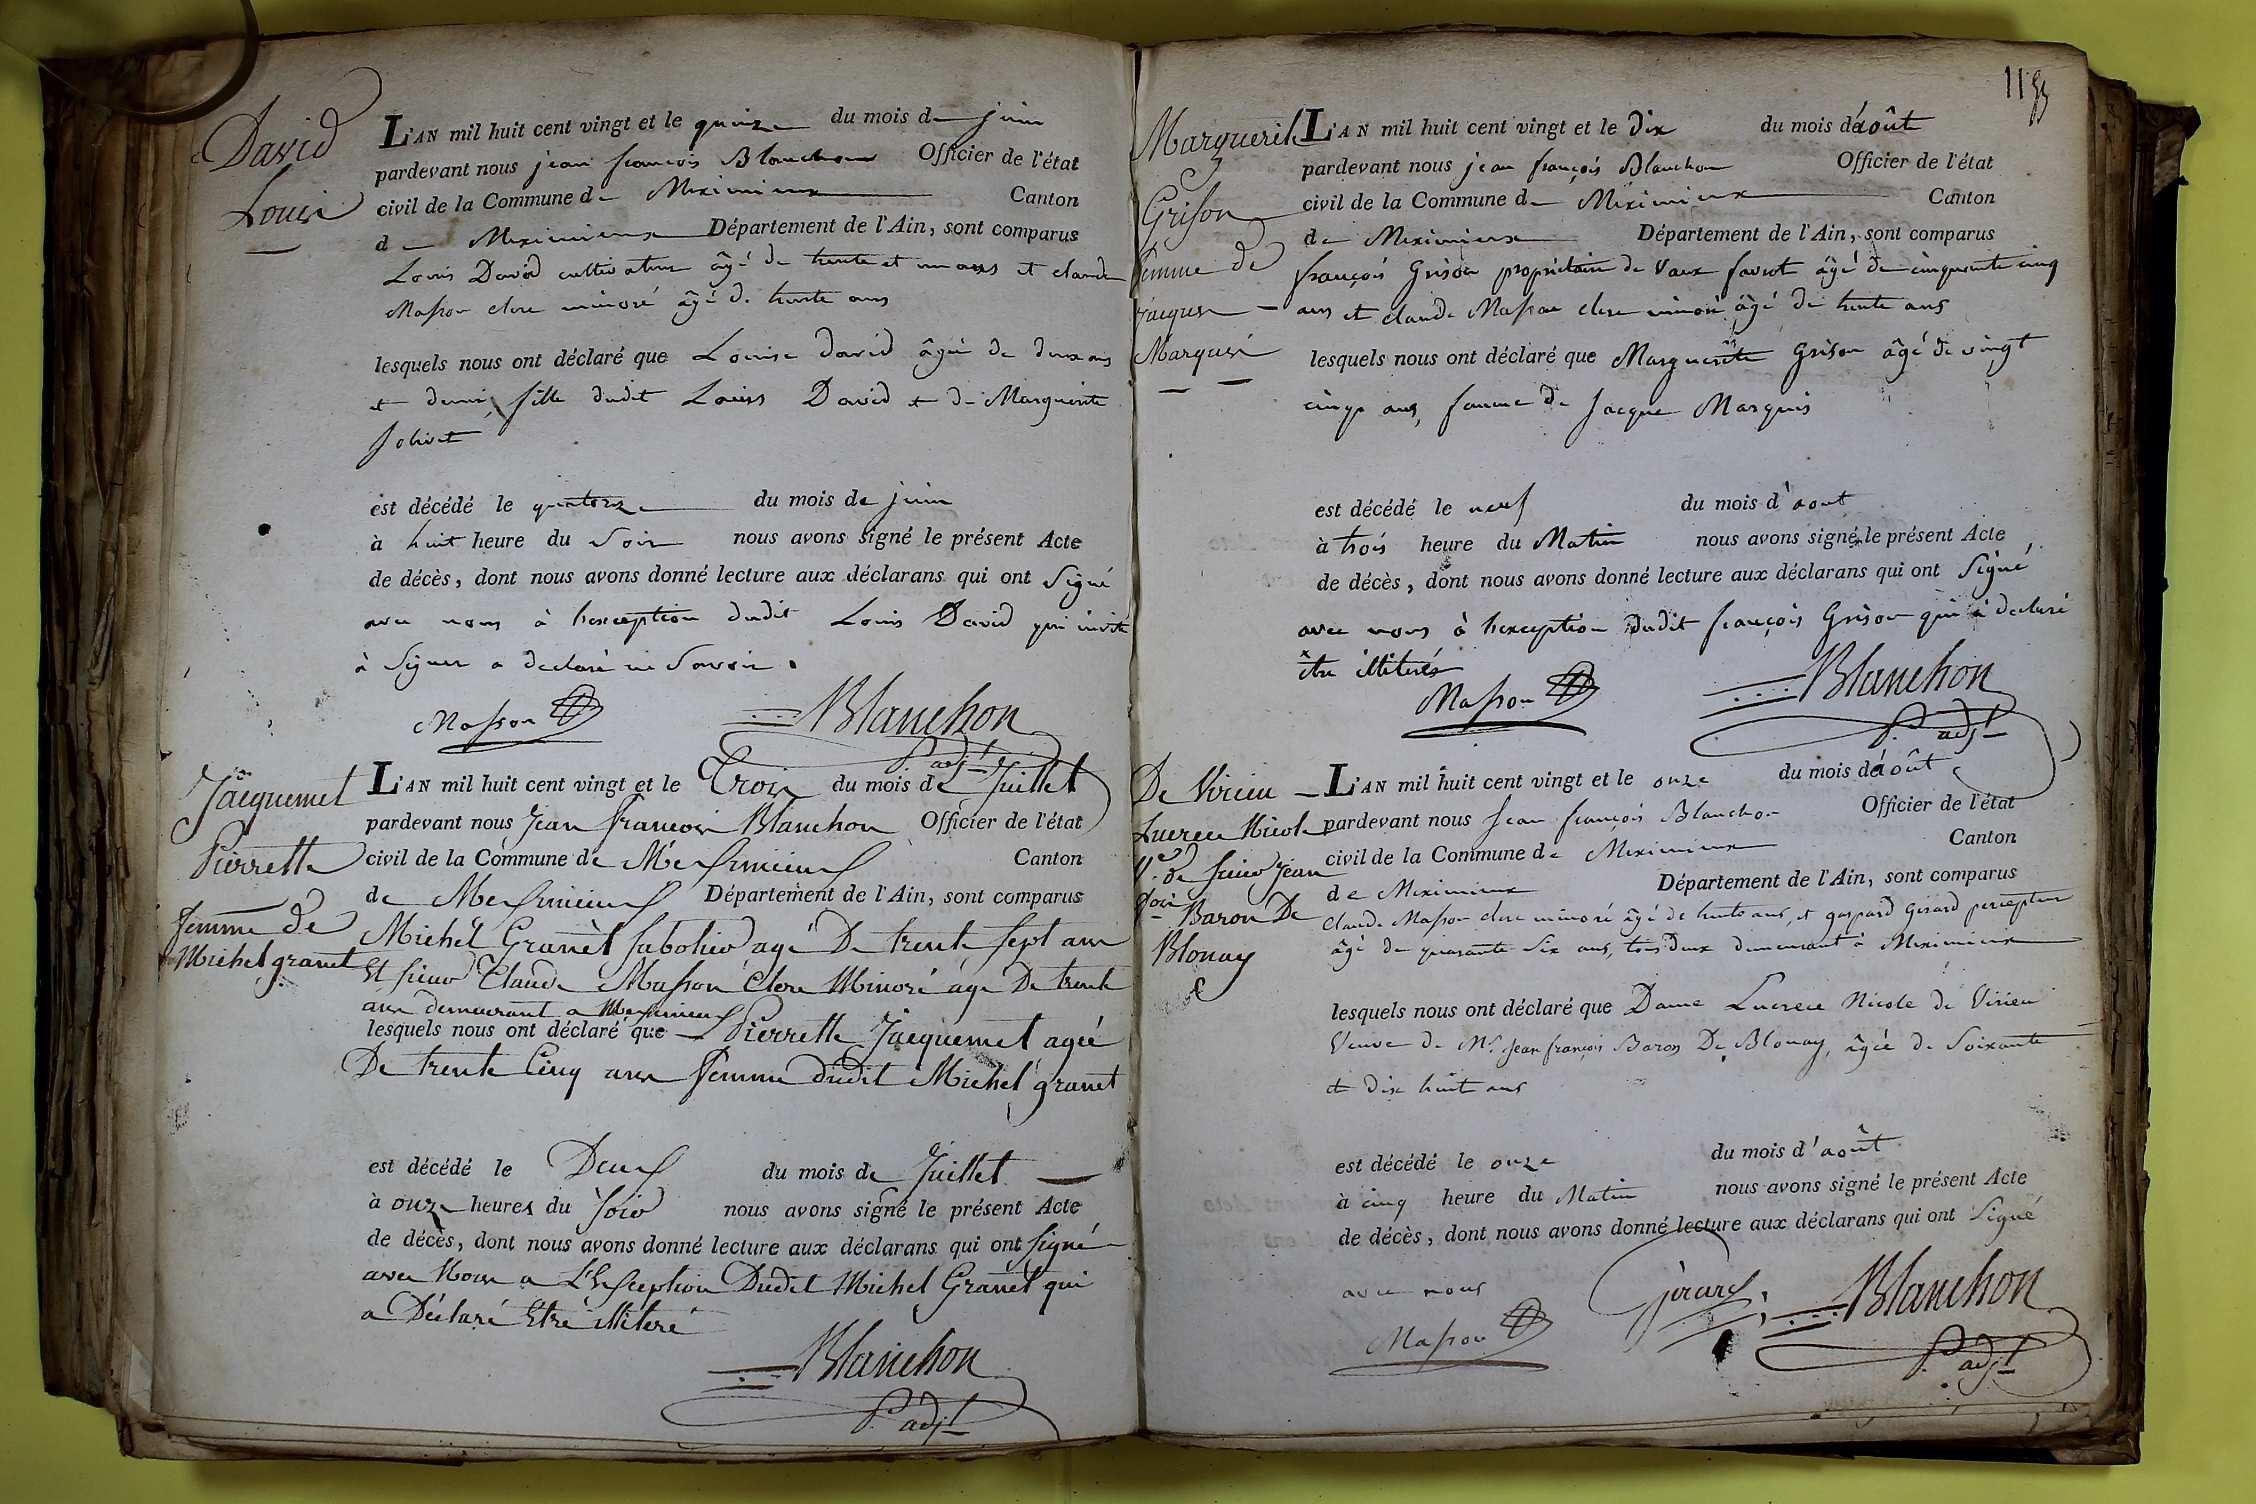 David
Louise
L'AN mil huit cent vingt et le quinze du mois de juin
pardevant nous jean françois Blanchon Officier de l'état
civil de la Commune de Meximieux Canton
de Meximieux Département de l'Ain, sont comparus
Louis David cultivateur âgé de trente et un ans et claude
Masson clerc minoré âgé de trente ans
lesquels nous ont déclaré que Louise david âgée de deux ans
et demi, fille dudit Louis David et de Marguerite
Jolivet
est décédé le quatorze du mois de juin
à huit heure du Soir nous avons signé le présent Acte
de décès, dont nous avons donné lecture aux déclarans qui ont Signé
avec nous à l'exception dudit Louis David qui invité
à Signer a declaré ne Savoir.
Masson Blanchon
P. adjt
Jacquemet
Pierrette
femme de
Michel granet
L'AN mil huit cent vingt et le Trois du mois de Juillet
pardevant nous Jean françois Blanchon Officier de l'état
civil de la Commune de Meximieux Canton
de Meximieux Département de l'Ain, sont comparus
Michel Granet sabotier agé De trente sept ans
Et sieur Claude Masson Clerc Minoré agé De trente
ans demeurant a Meximieux
lesquels nous ont déclaré que Pierrette Jacquemet agée
De trente Cinq ans femme dudit Michel granet
est décédé le Deux du mois de Juillet
à onze heures du Soir nous avons signé le présent Acte
de décès, dont nous avons donné lecture aux déclarans qui ont signé
avec Nous a L'Exception Dudit Michel Granet qui
a Déclaré Etre illiteré
Blanchon
P. adjt
1155
Marguerite
Grison
femme de
Jacques
Marquis
L'AN mil huit cent vingt et le dix du mois d'août
pardevant nous jean françois Blanchon Officier de l'état
civil de la Commune de Meximieux Canton
de Meximieux Département de l'Ain, sont comparus
françois Grison propriétaire de Vaux favrot âgé de cinquante cinq
ans et claude Masson clerc minoré âgé de trente ans
lesquels nous ont déclaré que Marguerite Grison âgé de vingt
cinq ans, femme de Jacque Marquis
est décédé le neuf du mois d'aout
à trois heure du Matin nous avons signé le présent Acte
de décès, dont nous avons donné lecture aux déclarans qui ont Signé
avec nous à l'exception dudit françois Grison qui à declaré
être illiterés
Masson Blanchon
P. adjt
De Virieu
Lucrece Nicole
Ve. de sieur Jean
fois Baron De
Blonay
L'AN mil huit cent vingt et le onze du mois d'août
pardevant nous Jean françois Blanchon Officier de l'état
civil de la Commune de Meximieux Canton
de Meximieux Département de l'Ain, sont comparus
Claude Masson clerc minoré âgé de trente ans, et gaspard Girard percepteur
âgé de quarante Six ans, tous deux demeurant à Meximieux
lesquels nous ont déclaré que Dame Lucrece Nicole de Virieu
Veuve de Mr. Jean françois Baron De Blonay, âgée de Soixante
et dix huit ans
est décédé le onze du mois d'août
à cinq heure du Matin nous avons signé le présent Acte
de décès, dont nous avons donné lecture aux déclarans qui ont Signé
avec nous
Masson Girard Blanchon
P. adjt